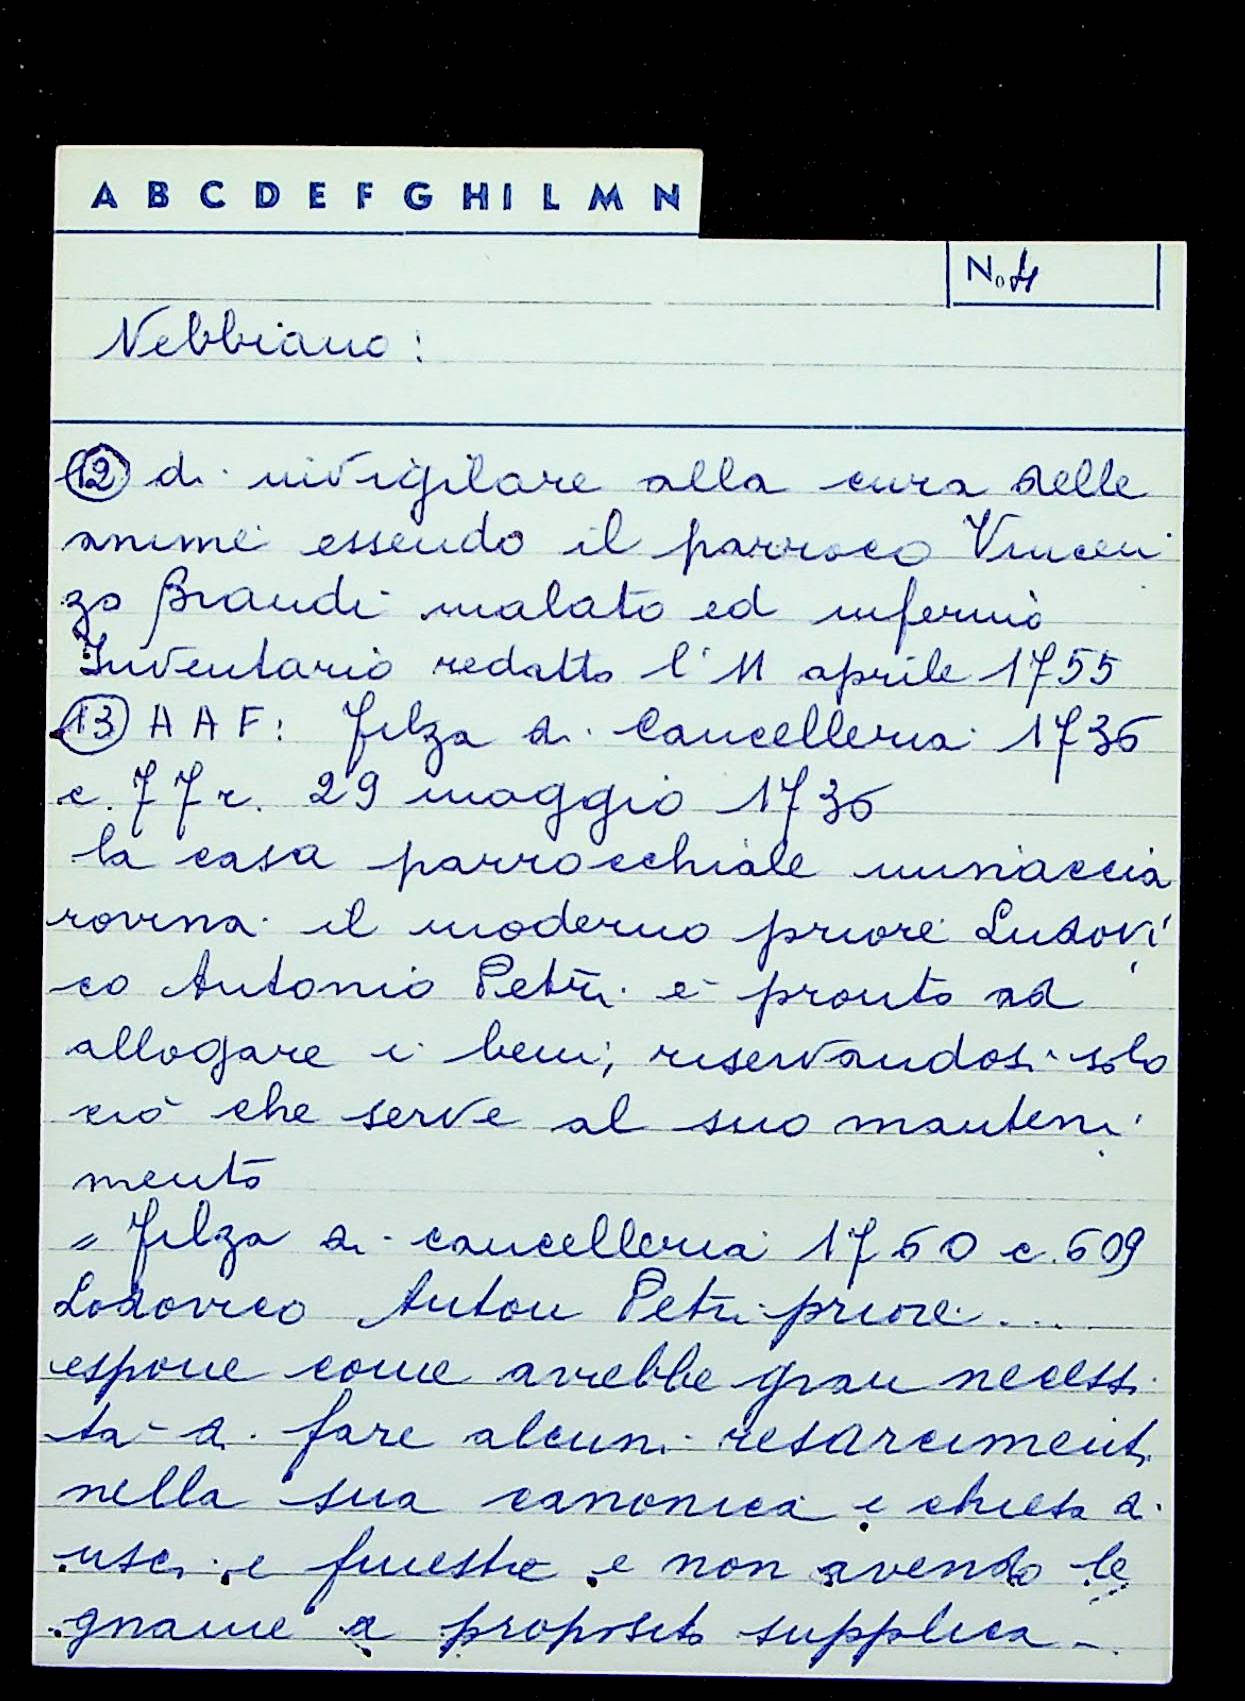 A B C D E F G H I L M N
N. 4
Nebbiano:
(12) di invigilare alla cura delle
anime essendo il parroco Vincen
zo Brandi malato ed infermo
Inventario redatto l'11 aprile 1755
(13) A A F: Filza di Cancelleria 1736
c. 77 r. 29 maggio 1736
la casa parrocchiale minaccia
rovina il moderno priore Ludovi
co Antonio Petri è pronto ad
allogare i beni, riservandosi solo
ciò che serve al suo manteni
mento
" Filza di cancelleria 1760 c. 609
Lodovico Anton Petri priore ...
espone come avrebbe gran necessi
tà di fare alcuni resarcimenti
nella sua canonica e chiesa di
usci e finestre e non avendo le
gname a proposito supplica -